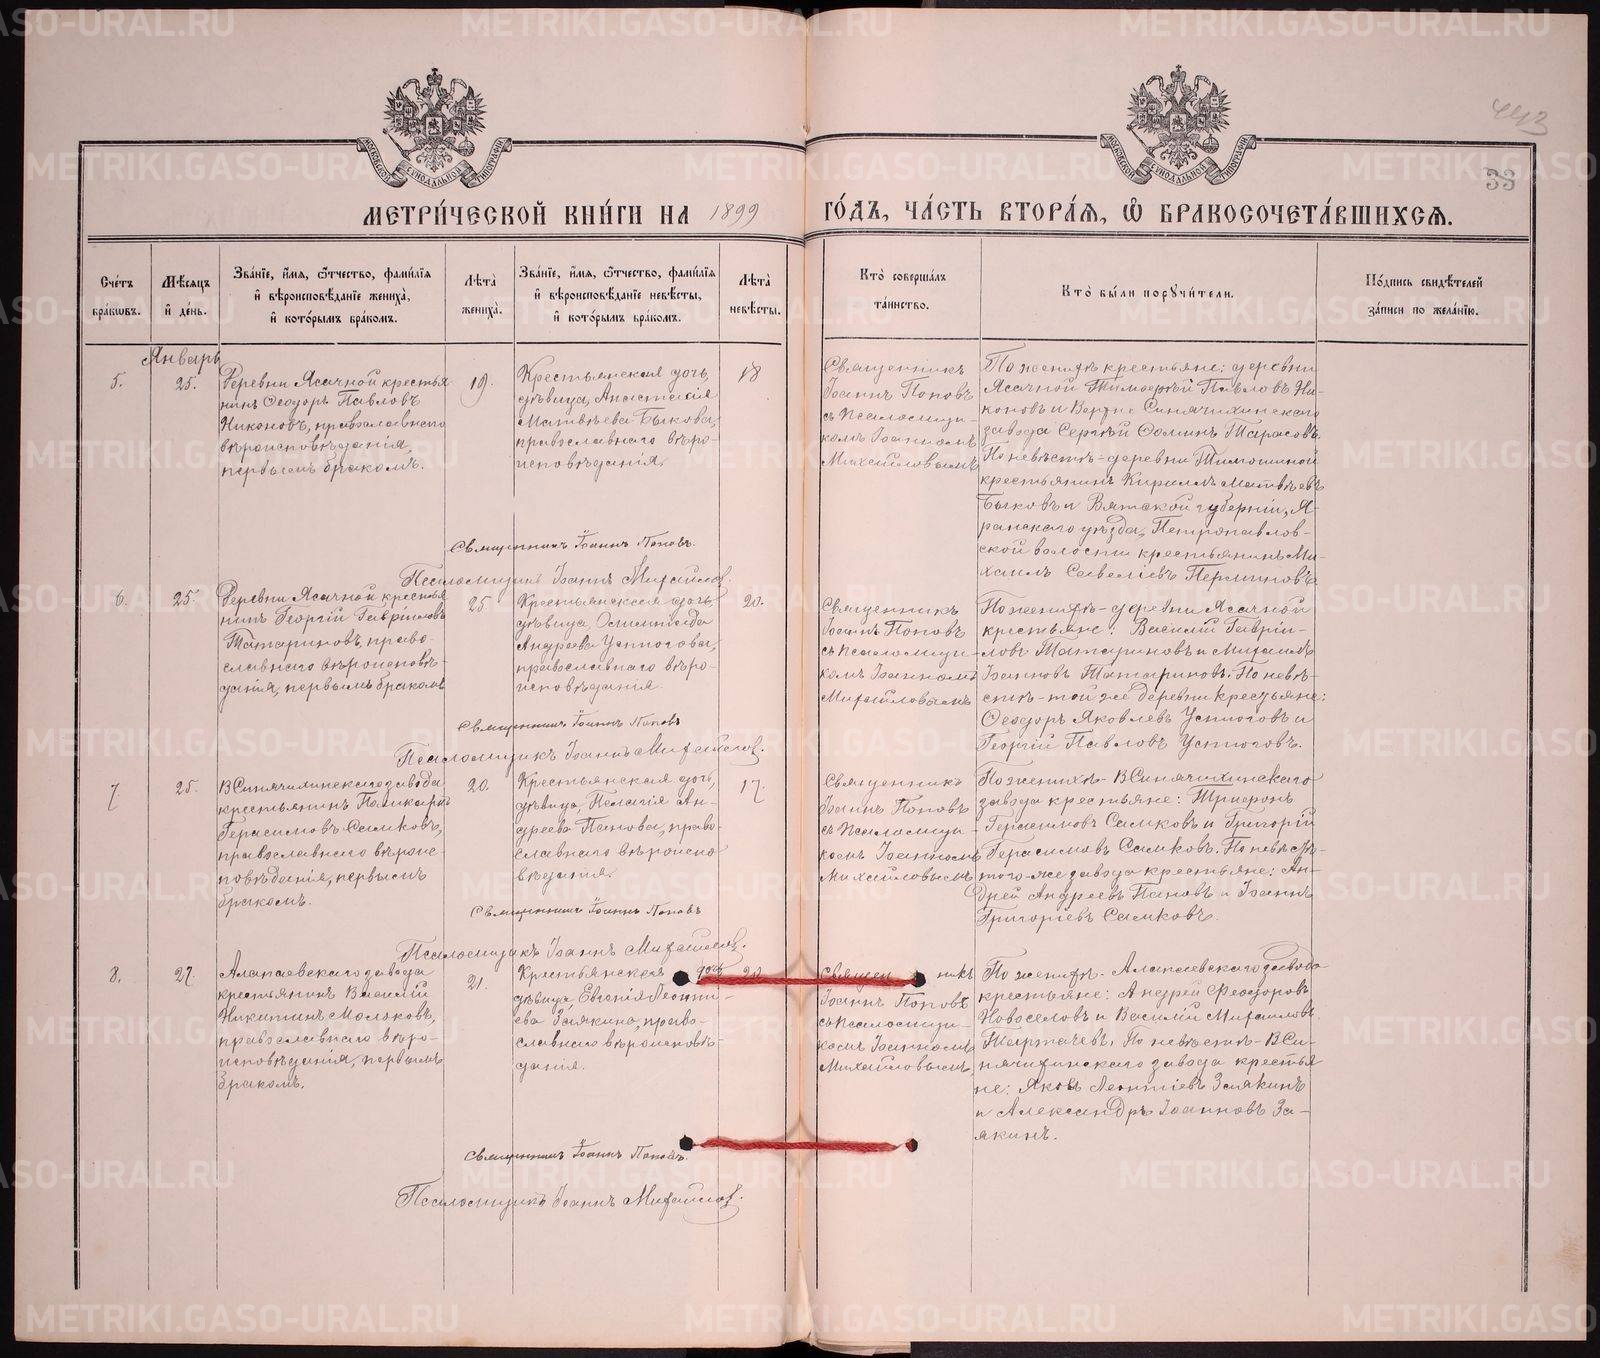 МЕТРИ́ЧЕСКОЙ КНИ́ГИ НА 1899 ГО́ДЪ, ЧА́СТЬ ВТОРА́Я, Ѡ БРАКОСОЧЕТА́ВШИХСЯ.
443
33
МОСКОВСКОЙ СѴНОДАЛЬНОЙ ТИПОГРАФІИ
МОСКОВСКОЙ СѴНОДАЛЬНОЙ ТИПОГРАФІИ
Сче́тъ бра́ковъ.
Мѣ́сяцъ и҆ де́нь.
Зва́нїе, и҆́мѧ, ѻ҆́тчество, фами́лїѧ
и҆ вѣроисповѣ́данїе жениха̀,
и҆ кото́рымъ бра́комъ.
Лѣта̀ жениха̀.
Зва́нїе, и҆́мѧ, ѻ҆́тчество, фами́лїѧ
и҆ вѣроисповѣ́данїе невѣ́сты,
и҆ кото́рымъ бра́комъ.
Лѣта̀ невѣ́сты.
Кто̀ соверша́лъ
та́инство.
Кто̀ бы́ли поручи́тели.
По́дпись свидѣ́телей
за́писи по жела́нїю.
Январь
5.
25.
Деревни Ясачной крестья
нинъ Ѳеодоръ Павловъ
Никоновъ, православнаго
вѣроисповѣданія,
первымъ бракомъ.
19.
Крестьянская дочь,
дѣвица, Анастасія
Матвѣева Быкова,
православнаго вѣро-
исповѣданія.
18
Священникъ
Іоаннъ Поповъ
съ псаломщи-
комъ Іоанномъ
Михайловымъ
По женихѣ крестьяне: деревни
Ясачной Тимофей Павловъ Ни-
коновъ и Верхне Синячихинскаго
завода Сергѣй Ѳоминъ Тарасовъ.
По невѣстѣ - деревни Тимошиной
крестьянинъ Кириллъ Матвѣевъ
Быковъ и Вятской губерніи, Я-
ранскаго уѣзда, Петропавлов-
ской волости крестьянинъ Ми-
хаилъ Савеліевъ Перминовъ
Священникъ Іоаннъ Поповъ.
Псаломщикъ Іоаннъ Михайловъ.
6.
25.
Деревни Ясачной крестья
нинъ Георгій Гавріиловъ
Татариновъ, право-
славнаго вѣроисповѣ-
данія, первымъ бракомъ
25
Крестьянская дочь,
дѣвица,
Андреева Устюгова,
православнаго вѣро-
исповѣданія
20.
Священникъ
Іоаннъ Поповъ
съ псаломщи-
комъ Іоанномъ
Михайловымъ
По женихѣ - деревни Ясачной
крестьяне: Василій Гаврії-
ловъ Татариновъ и Михаилъ
Іоанновъ Татариновъ. По невѣ-
стѣ - той же деревни крестьяне:
Ѳеодоръ Яковлевъ Устюговъ и
Георгій Павловъ Устюговъ.
Священникъ Іоаннъ Поповъ
Псаломщикъ Іоаннъ Михайловъ.
7
25.
В Синячихинскаго завода
крестьянинъ Поликарпъ
Герасимовъ Самковъ,
православнаго вѣроис-
повѣданія, первымъ
бракомъ.
20.
Крестьянская дочь,
дѣвица, Пелагія Ан-
дреева Панова, право-
славнаго вѣроиспо-
вѣданія.
17.
Священникъ
Іоаннъ Поповъ
съ псаломщи-
комъ Іоанномъ
Михайловымъ
По женихѣ - В Синячихинскаго
завода крестьяне: Трифонъ
Герасимовъ Самковъ и Григорій
Герасимовъ Самковъ. По невѣстѣ -
того-же завода крестьяне: Ан-
дрей Андреевъ Пановъ и Іоаннъ
Григоріевъ Самковъ.
Священникъ Іоаннъ Поповъ
Псаломщикъ Іоаннъ Михайловъ.
8.
27
Алапаевскаго завода
крестьянинъ Василій
Никитинъ Молоковъ,
православнаго вѣро-
исповѣданія, первымъ
бракомъ.
21.
Крестьянская дочь
дѣвица, Евгенія Леонті-
ева Заякина, право-
славнаго вѣроисповѣ-
данія.
20
Священникъ
Іоаннъ Поповъ
съ псаломщи-
комъ Іоанномъ
Михайловымъ
По женихѣ - Алапаевскаго завода
крестьяне: Андрей Ѳеодоровъ
Новоселовъ и Василій Михаиловъ
Тартачевъ. По невѣстѣ - В Си-
нячихинскаго завода крестья
не: Яковъ Леонтіевъ Заякинъ
и Александръ Іоанновъ За-
якинъ.
Священникъ Іоаннъ Поповъ.
Псаломщикъ Іоаннъ Михайловъ.
METRIKI.GASO-URAL.RU